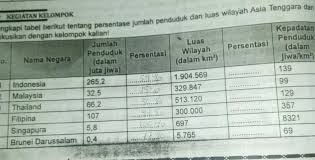 KEGIATAN KELOMPOK
ngkapi tabel berikut tentang persentase jumlah penduduk dan luas wilayah Asia Tenggara dan
kusikan dengan kelompok kalian!
o. Nama Negara Jumlah Penduduk (dalam juta jiwa) Persentasi Luas Wilayah (dalam km²) Persentasi Kepadatan Penduduk (dalam jiwa/km²)
Indonesia 265,2 1.904.569 139
Malaysia 32,5 329.847 99
Thailand 66,2 513.120 129
Filipina 107 300.000 357
Singapura 5,8 697 8321
Brunei Darussalam 0,4 5.765 69